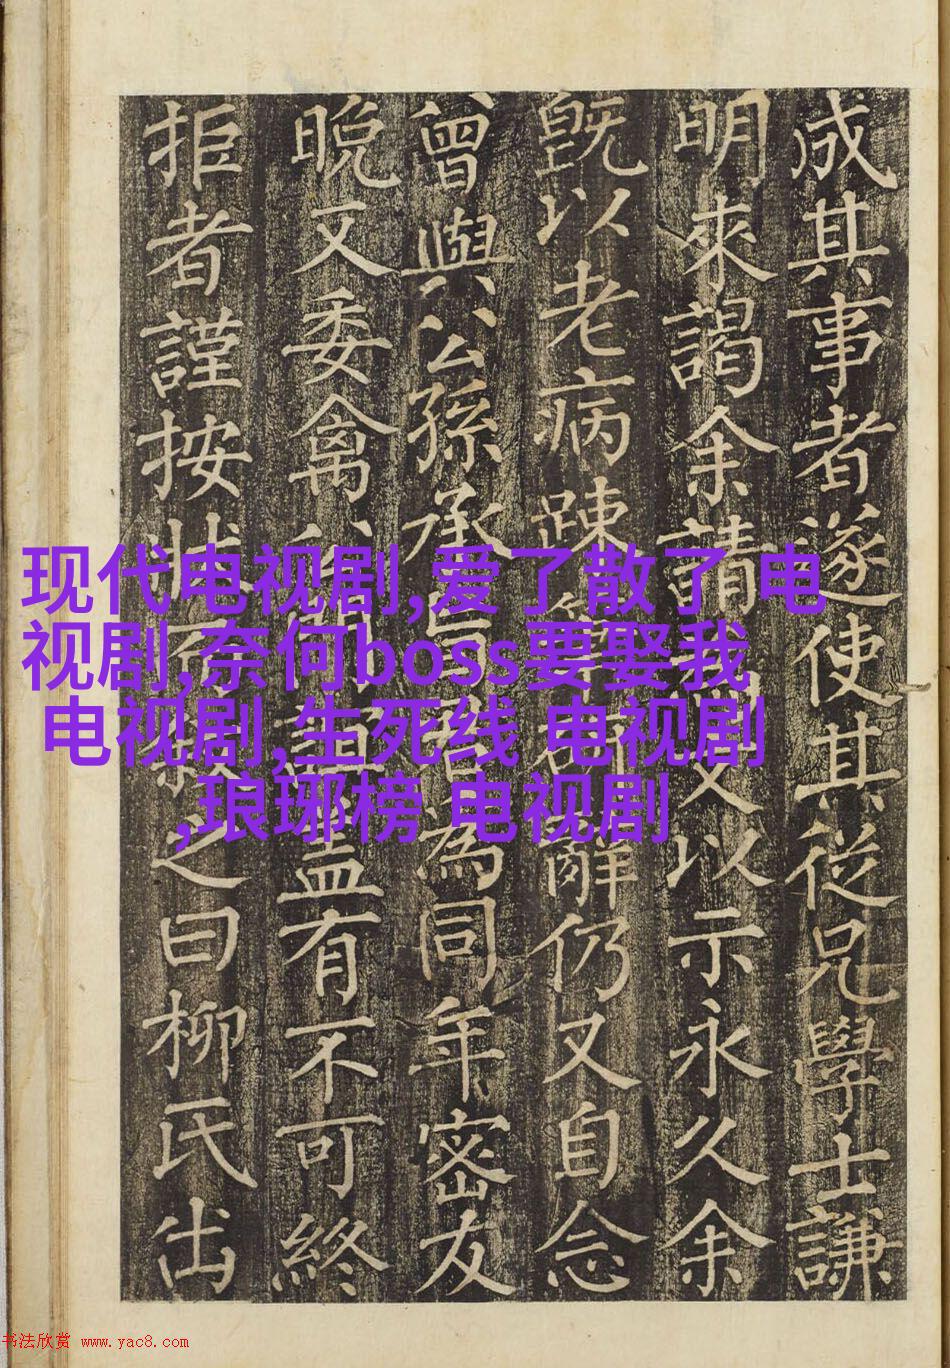 成其事者遂使其從兄學士謙
明來謁余請文以示永久余
既以老病踈辭仍又自念
曾與公孫承旨為同年密友
晚又委禽誼蓋有不可終
拒者謹按狀而之曰柳氏出
现代电视剧,爱了散了 电
视剧,奈何boss要娶我
电视剧,生死线 电视剧
,琅琊榜 电视剧
书法欣赏 www.yac8.com